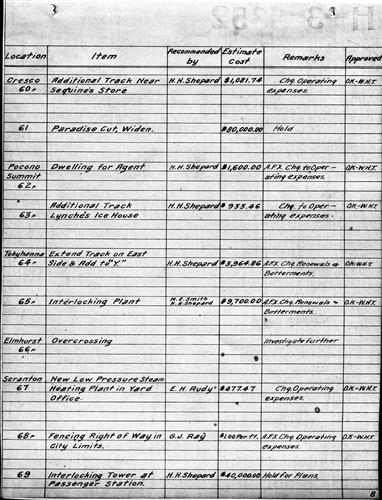 H-3-1852
Location Item Recommended by Estimate Cost Remarks Approved
Cresco Additional Track Near H.H.Shepard $1,081.74 Chg. Operating O.K.-W.H.T.
60" Sequine's Store expenses.
61 Paradise Cut, Widen. $80,000.00 Hold
Pocono Dwelling for Agent H.H.Shepard $1,600.00 A.F.X. Chg. to Oper- O.K-W.H.T.
Summit ating expenses.
62"
Additional Track H.H.Shepard $933.46 Chg. to Oper- O.K.-W.H.T.
63" Lynche's Ice House ating expenses.
Tobyhanna Extend Track on East
64" Side & Add to "Y." H.H.Shepard $3,964.86 A.F.X. Chg. Renewals & O.K-W.H.T.
Betterments.
65" Interlocking Plant M.E.Smith $9,700.00 A.F.X. Chg. Renewals & O.K-W.H.T.
H.H.Shepard Betterments.
Elmhurst Overcrossing Investigate Further
66"
Scranton New Low Pressure Steam
67 Heating Plant in Yard E.H. Rudy $477.47 Chg. Operating O.K-W.H.T.
Office. expenses.
68" Fencing Right of Way in G.J. Ray $1.00 Per. Ft. A.F.X. Chg. Operating O.K-W.H.T.
City Limits. expenses.
69 Interlocking Tower at H.H.Shepard $40,000.00 Hold for Plans.
Passenger Station.
8